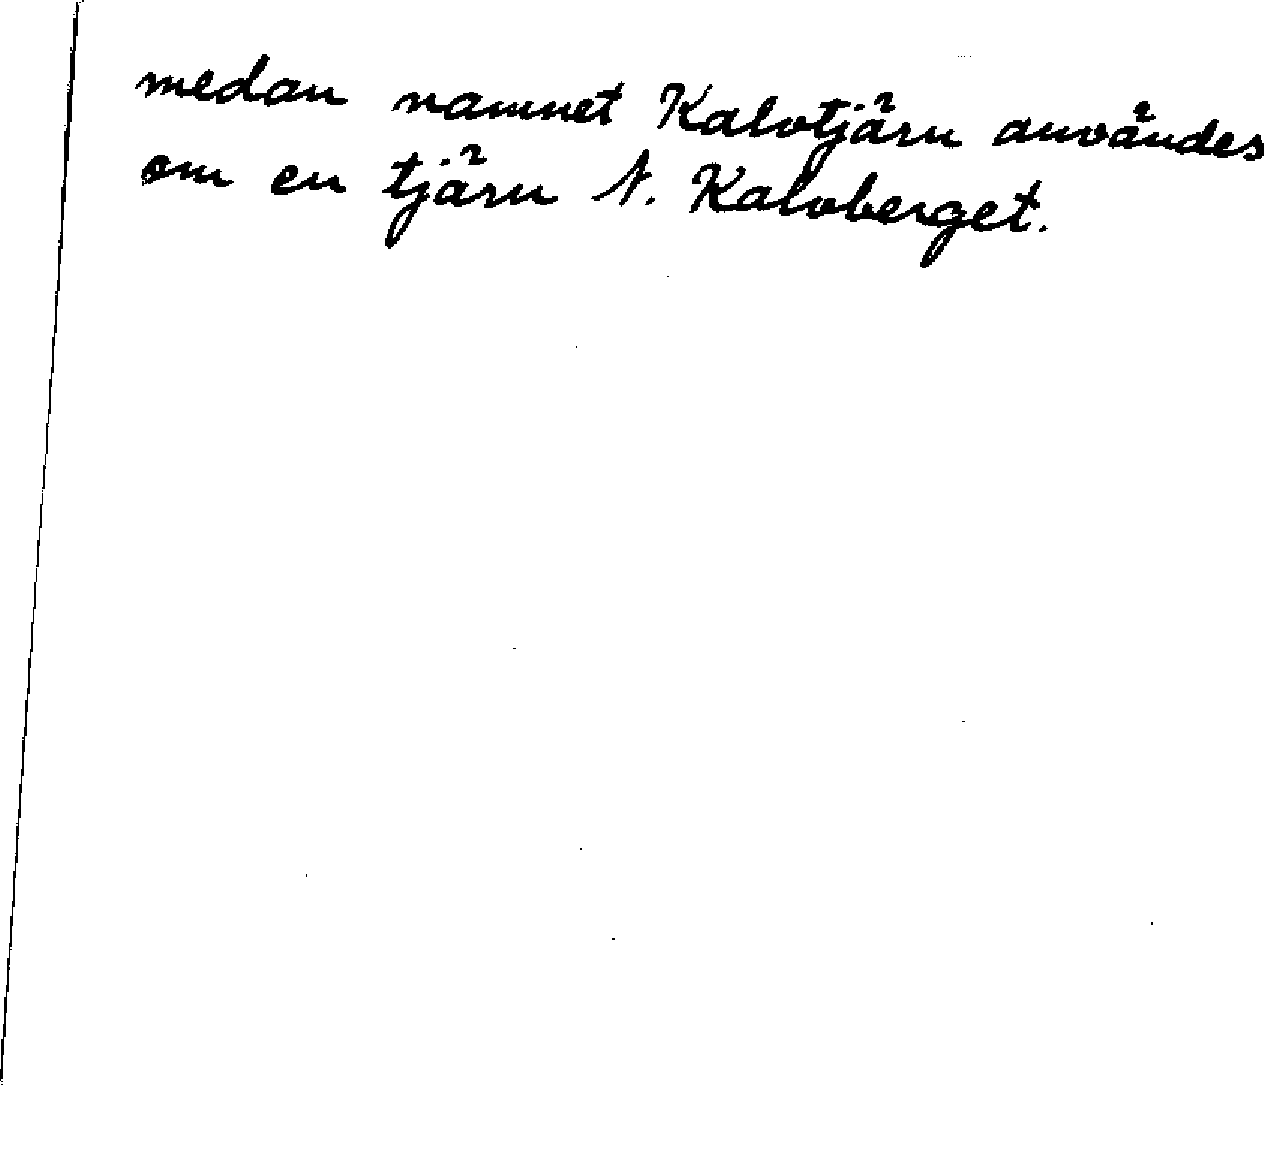 medan namnet Kalvtjärn användes
om en tjärn N. Kalvberget.